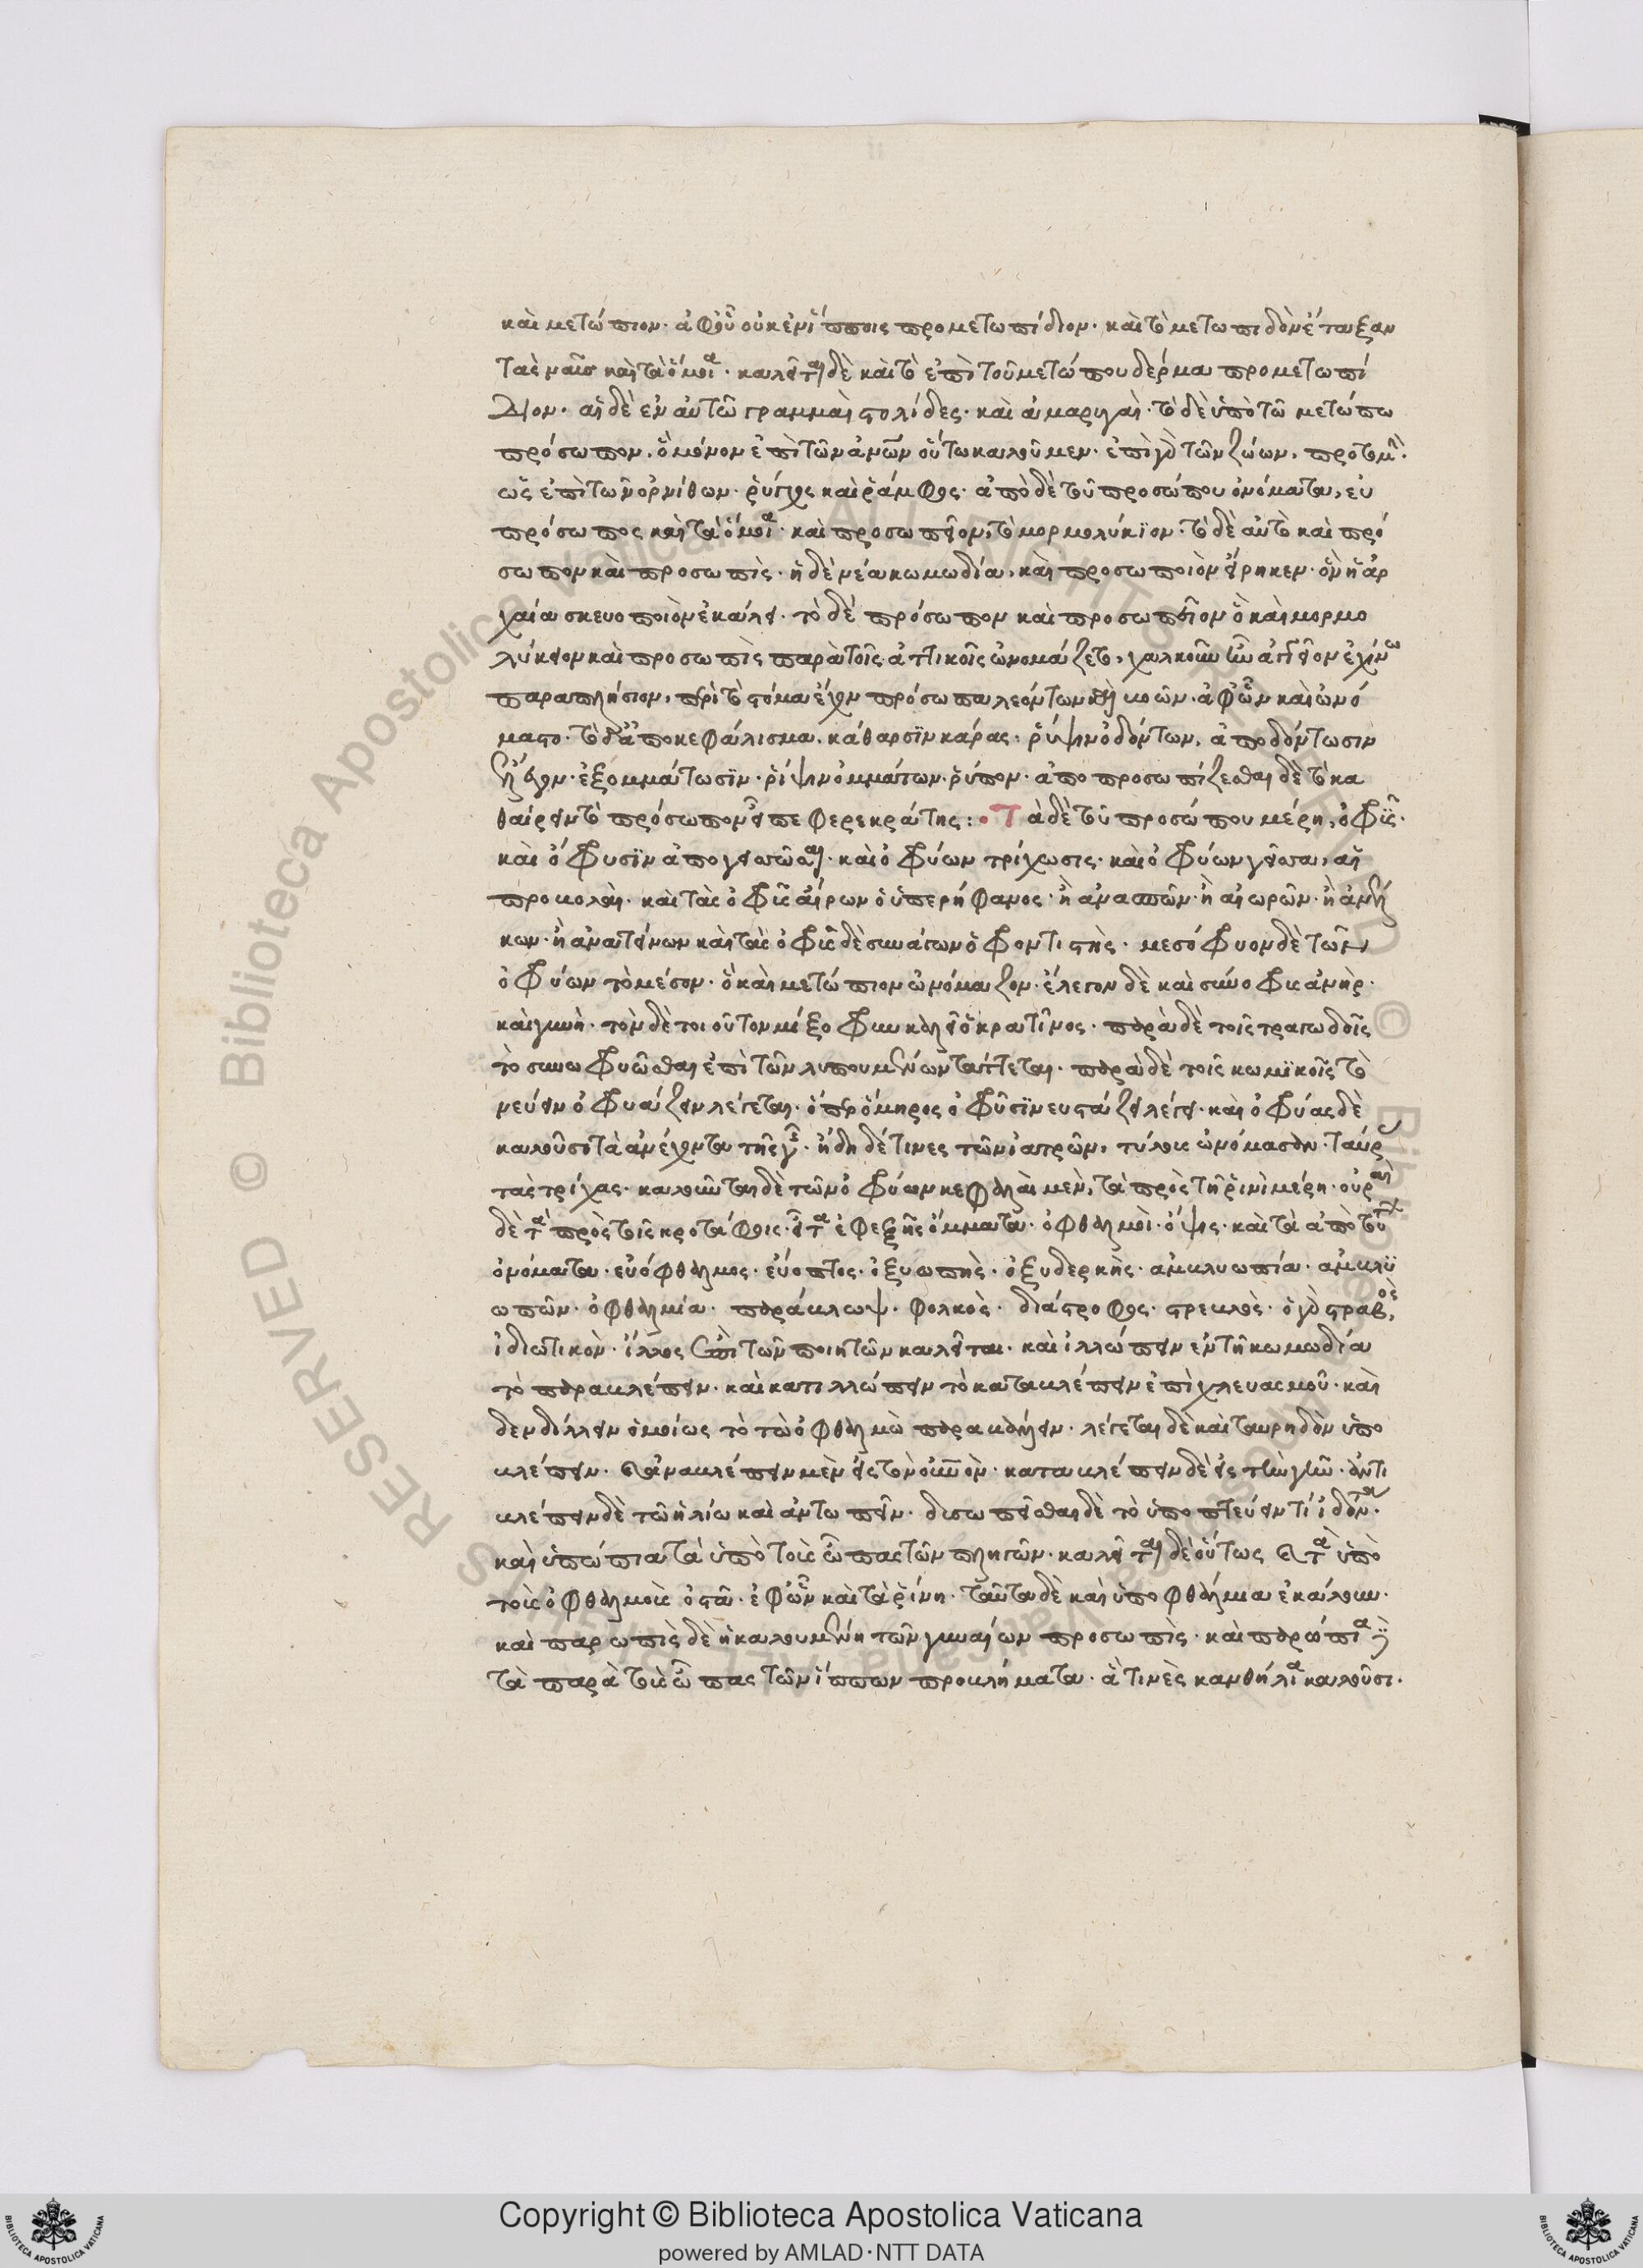 καὶ μετώπιον· ἀφ' οὗ οὐκ ἐν ἵπποις προμετωπίδιον· καὶ τὸ μετωπιδὸν ἔταξαν
τὰς ναῦς καὶ τὰ ὅμοια· καλεῖται δὲ καὶ τὸ ἐπὶ τοῦ μετώπου δέρμα προμετωπί
διον· αἱ δὲ ἐν αὐτῶ γραμμαὶ στολίδες· καὶ ἁμαρυγαὶ· τὸ δὲ ὑπὸ τῶ μετώπω
πρόσωπον, ὃ μόνον ἐπὶ τῶν ἀνων οὕτω καλοῦμεν· ἐπὶ γὰρ τῶν ζώων, προτομὴ·
ὡς ἐπὶ τῶν ὀρνίθων· ῥύγχος καὶ ῥάμφος· ἀπὸ δὲ τοῦ προσώπου ὀνόματα, εὐ
πρόσωπος καὶ τὰ ὅμοια· καὶ προσωπεῖον, τὸ μορμολύκϊον· τὸ δὲ αὐτὸ καὶ πρό
σωπον καὶ προσωπὶς· ἡ δὲ νέα κωμωδία, καὶ προσωποιὸν εἴρηκεν· ὃν ἡ ἀρ
χαία σκευοποιὸν ἐκάλει· τὸ δὲ πρόσωπον καὶ προσωπεῖον ὃ καὶ μορμο
λύκειον καὶ προσωπὶς παρὰ τοῖς ἀττικοῖς ὠνομάζετο, χαλκοῦν ἦν ἀγγεῖον ἐχίνω
παραπλήσιον, περὶ τὸ στόμα ἔχον πρόσωπα λεόντων καὶ βοῶν· ἀφ' ὧν καὶ ὠνό
μαστο· τὸ δ' ἀποκεφάλισμα, κάθαρσϊν κάρας· ῥύψιν ὀδόντων, ἀποδόντωσιν
ἔλεγον· ἐξομμάτωσϊν· ῥίψιν ὀμμάτων· ῥύπον· ἀποπροσωπίζεσθαι δὲ τὸ κα
θαίρειν τὸ πρόσωπον εἶπε φερεκράτης: • Τὰ δὲ τοῦ προσώπου μέρη, ὀφρῦς·
καὶ ὀφρυσϊν ἀπογεισῶσαι· καὶ ὀφρύων τρίχωσις· καὶ ὀφρύων γεῖσα, αἱ
προβολαὶ· καὶ τὰς ὀφρῦς αἴρων ὁ ὑπερήφανος· ἢ ἀνασπῶν· ἢ αἰωρῶν· ἢ ἀνέλ
κων· ἢ ἀνατείνων καὶ τὰς ὀφρῦς δὲ συνάγων ὁ φροντιστὴς· μεσόφρυον δὲ τῶν
ὀφρύων τὸ μέσον· ὃ καὶ μετώπιον ὠνόμαζον· ἔλεγον δὲ καὶ σύνοφρυς ἀνὴρ·
καὶ γυνὴ· τὸν δὲ τοιοῦτον μιξόφρυν καλεῖ ὁ κρατῖνος· παρὰ δὲ τοῖς τραγωδοῖς
τὸ συνωφρυῶσθαι ἐπὶ τῶν λυπουμένων τάττεται· παρὰ δὲ τοῖς κωμϊκοῖς τὸ
νεύειν ὀφρυάζειν λέγεται· ὅπερ ὅμηρος ὀφρῦσϊ νευστάζει λέγει· καὶ ὀφρύας δὲ
καλοῦσι τὰ ἀνέχοντα τῆς γῆς· ἤδη δέ τινες τῶν ἰατρῶν, τύλους ὠνόμασαν· ταύρ
τὰς τρίχας· καλοῦνται δὲ τῶν ὀφρύων κεφαλαὶ μὲν, τὰ πρὸς τῆ ῥινὶ μέρη· οὐραὶ
δὲ τὰ πρὸς τοῖς κροτάφοις· εἶτα ἐφεξῆς ὄμματα· ὀφθαλμοὶ· ὄψις· καὶ τὰ ἀπὸ τούτων
ὀνόματα· εὐόφθαλμος· εὔοπτος· ὀξυωπὴς· ὀξυδερκὴς· ἀμβλυωπία· ἀμβλϋ
ωπῶν· ὀφθαλμία· παράβλωψ· φολκὸς· διάστροφος· στρεβλὸς· ὁ γὰρ στραβὸς,
ἰδιωτικὸν· ἴλλος ὑπὸ τῶν ποιητῶν καλεῖται· καὶ ἰλλώπειν ἐν τῆ κωμωδία
τὸ παραβλέπειν· καὶ κατιλλώπειν τὸ καταβλέπειν ἐπὶ χλευασμοῦ· καὶ
δενδίλλειν ὁμοίως τὸ τὼ ὀφθαλμὼ παραβάλλειν· λέγεται δὲ καὶ ταυρηδὸν ὑπο
βλέπειν· καὶ ἀναβλέπειν μὲν εἰς τὸν οὐνὸν· καταβλέπειν δὲ εἰς τὴν γῆν· ἀντι
βλέπειν δὲ τῶ ἡλίω καὶ ἀντωπεῖν· δυσωπεῖσθαι δὲ τὸ ὑποπτεύειν τί ἰδόντα·
καὶ ὑπώπια τὰ ὑπὸ τοὺς ὦπας τῶν πληγῶν· καλεῖται δὲ οὕτως καὶ τὰ ὑπὸ
τοὺς ὀφθαλμοὺς ὀστᾶ· ἐφ' ὧν καὶ τὰ ῥίνη· ταῦτα δὲ καὶ ὑποφθάλμια ἐκάλουν·
καὶ παρωπὶς δὲ ἡ καλουμένη τῶν γυναίων προσωπὶς· καὶ παρώπια
τὰ παρὰ τοὺς ὦπας τῶν ἵππων προβλήματα· ἅ τινὲς κανθήλια καλοῦσι·